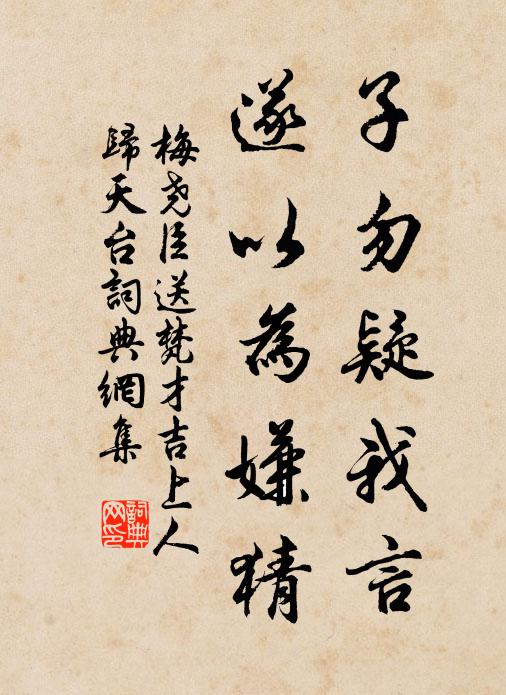 子勿疑我言
遂以為嫌猜
梅尧臣送梵才吉上人
歸天台詞典網集
詞典
网印